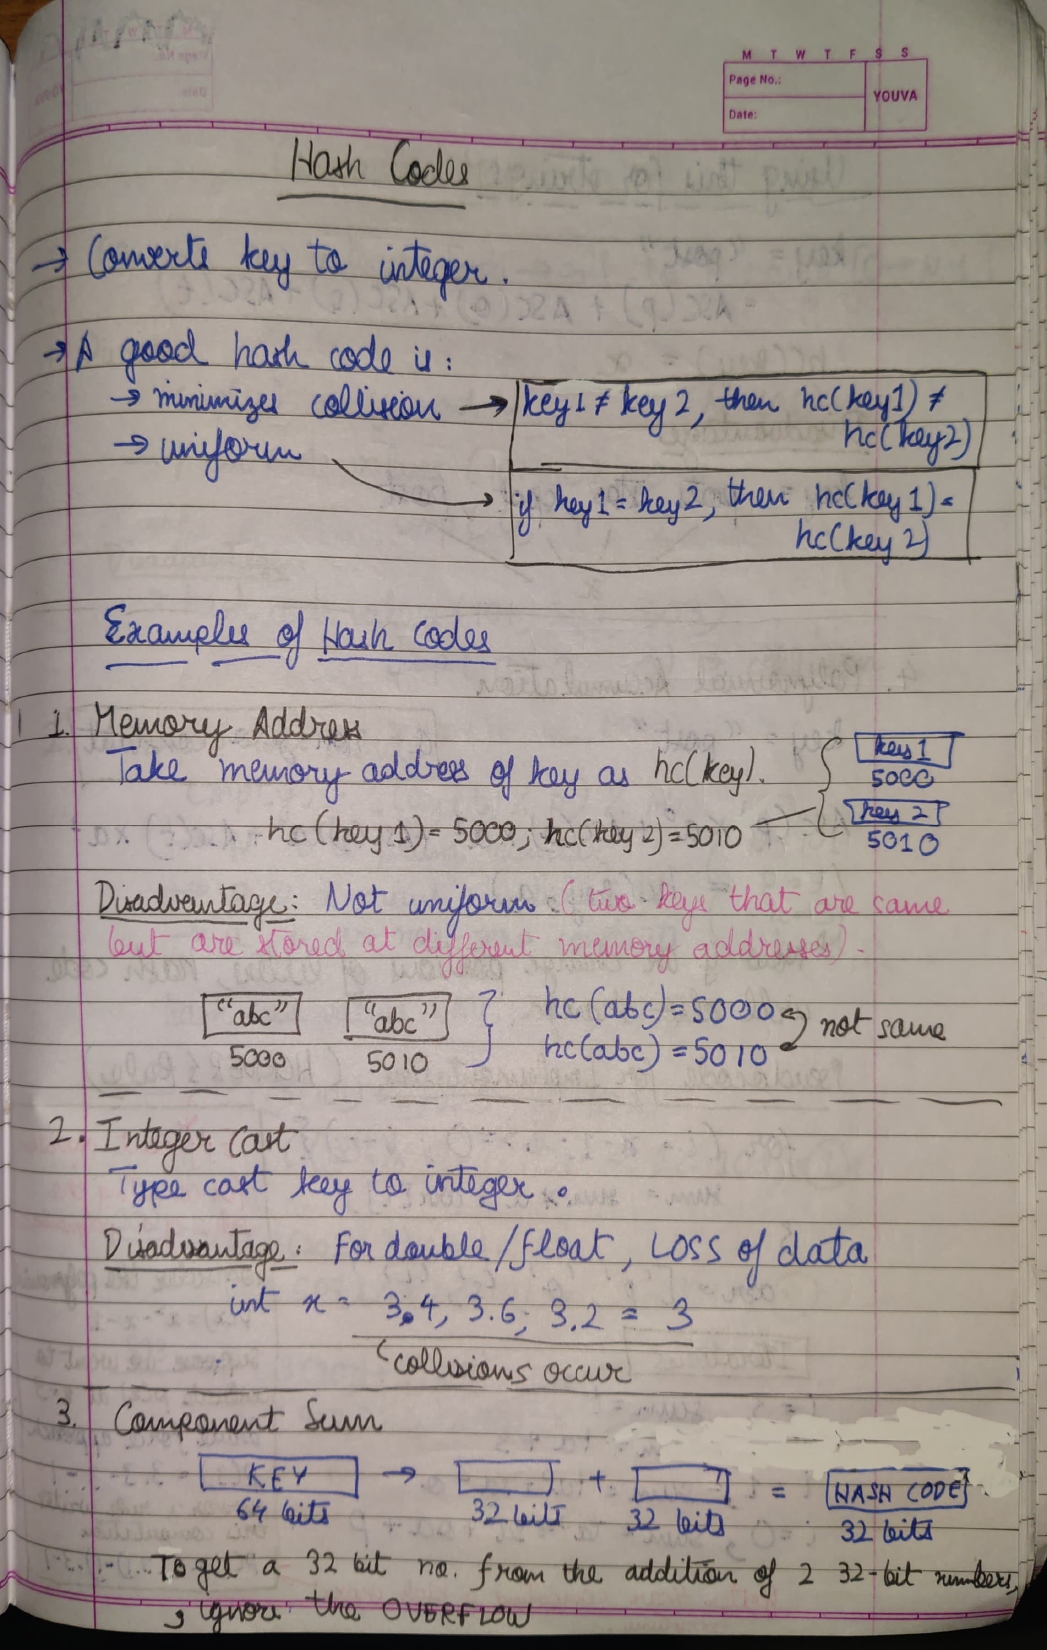 M T W T F S S
Page No.:
YOUVA
Date:
Hash Codes
→ Converts key to integer.
→ A good hash code is:
→ minimizes collision → key1 ≠ key 2, then hc(key1) ≠
hc(key2)
→ uniform
if key1 = key2, then hc(key1) =
hc(key 2)
Examples of Hash Codes
1. Memory Address
Take memory address of key as hc(key).
key 1
5000
key 2
5010
hc(key 1) = 5000; hc(key 2) = 5010
Disadvantage: Not uniform (two keys that are same
but are stored at different memory addresses).
"abc" "abc" hc(abc) = 5000
5000 5010 hc(abc) = 5010
not same
2. Integer Cast
Type cast key to integer.
Disadvantage: For double/float, LOSS of data
int x = 3.4, 3.6, 3.2 = 3
collisions occur
3. Component Sum
KEY → + = HASH CODE
64 bits 32 bits 32 bits 32 bits
To get a 32 bit no. from the addition of 2 32-bit numbers,
ignore the OVERFLOW